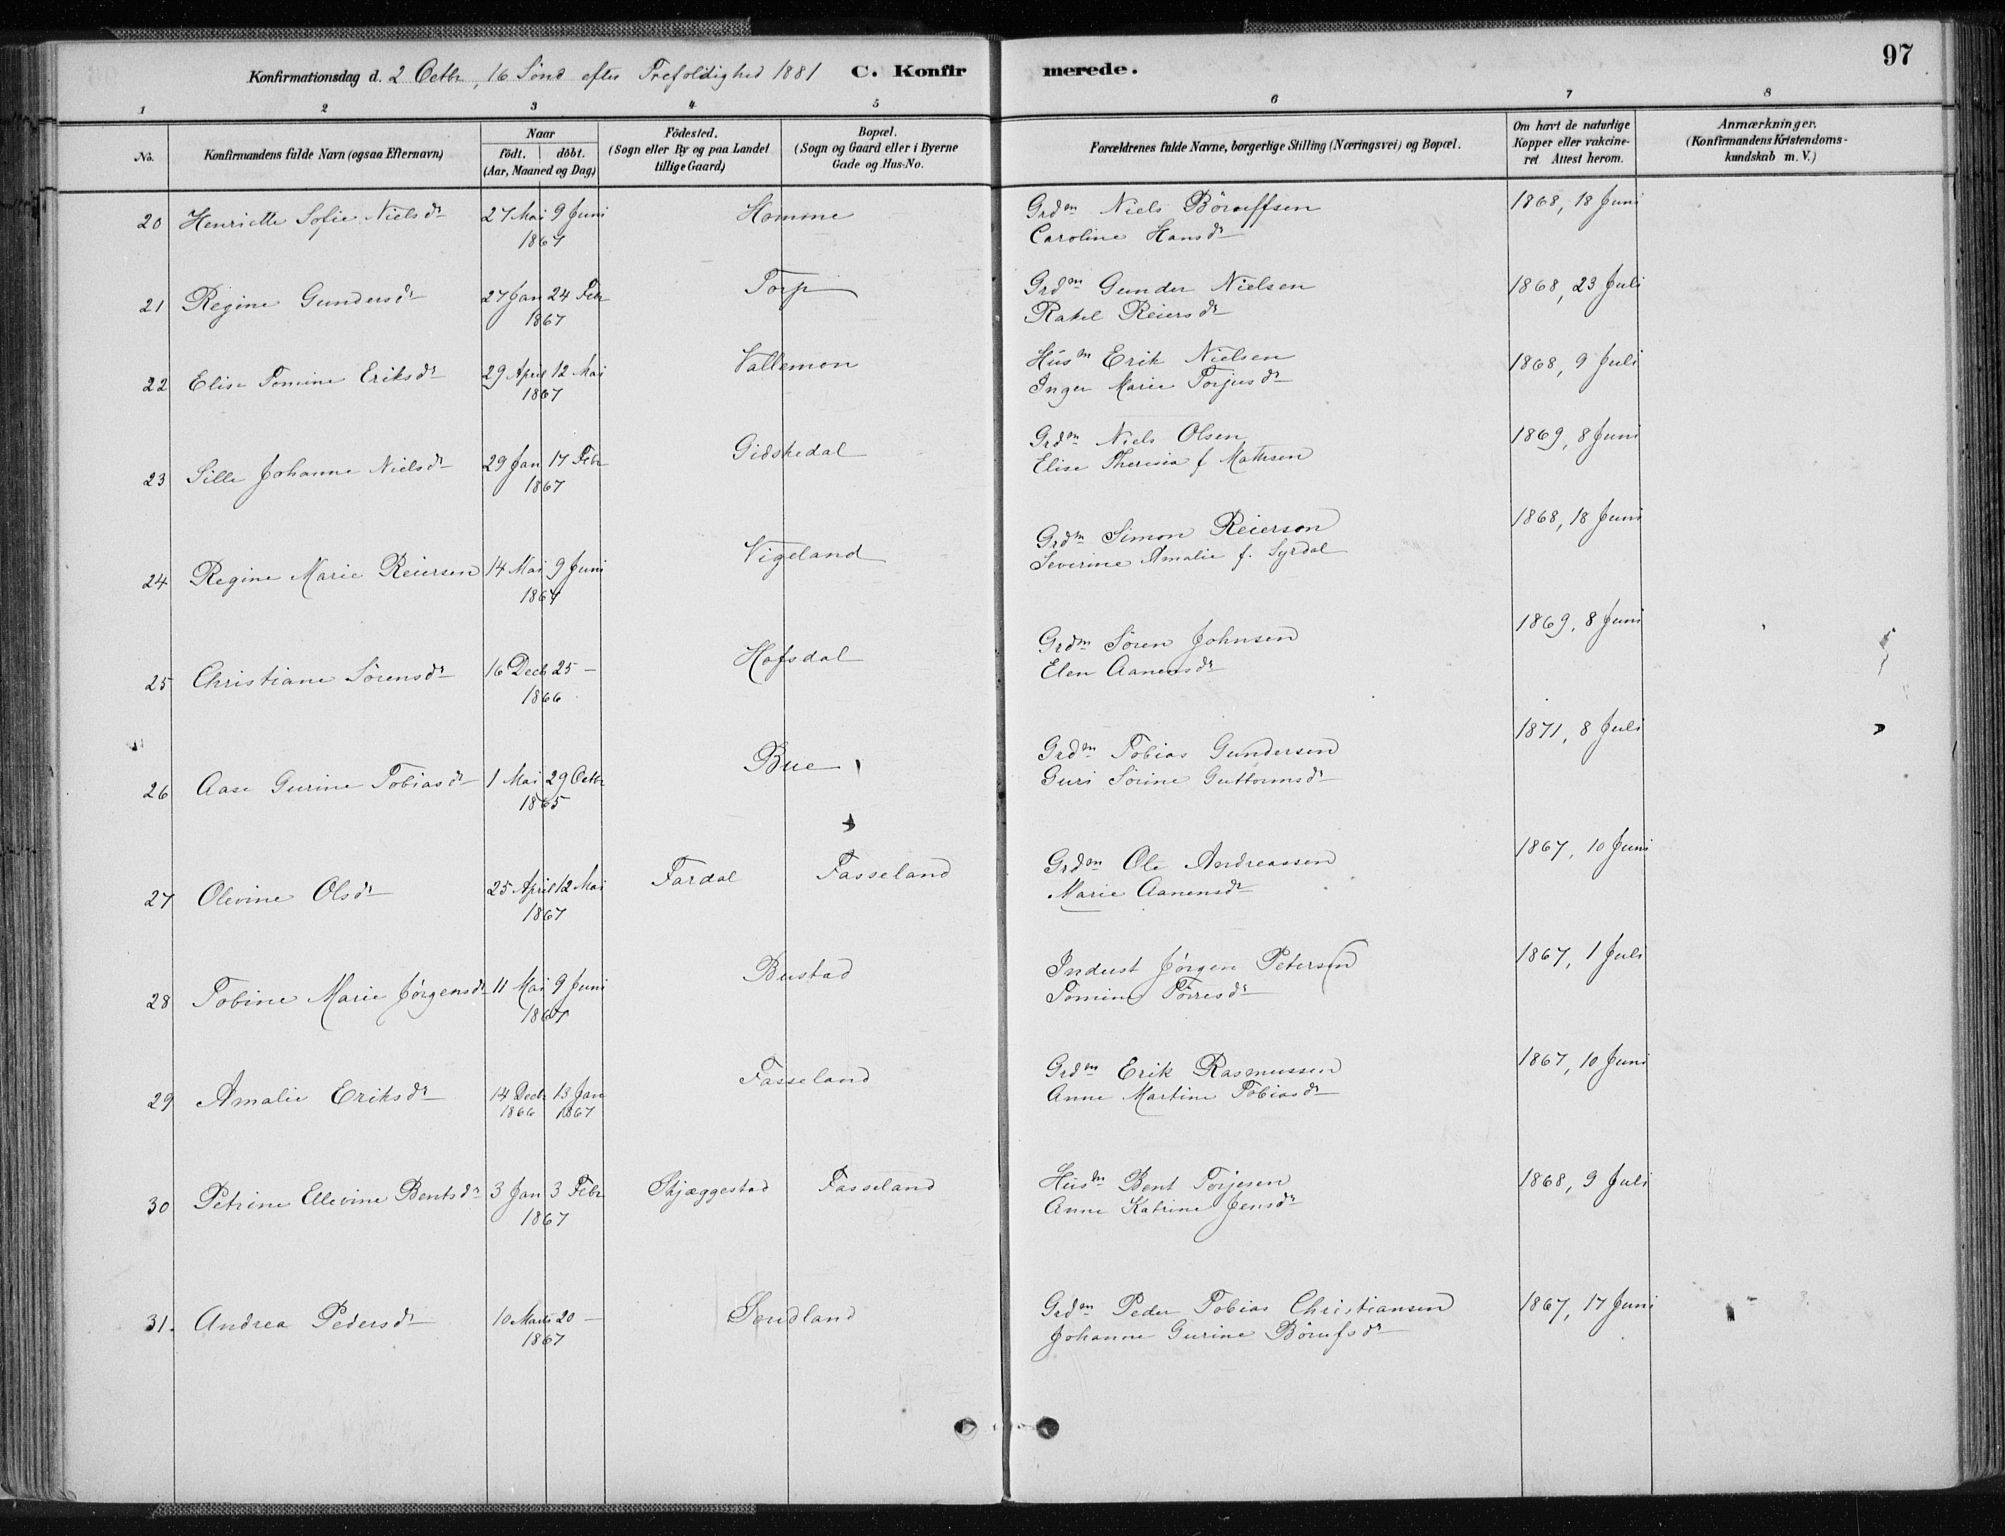 97
Konfirmationsdag d. 2 Octbr, 16 Sønd efter Trefoldighed 1881 C. Konfirmerede.
1 2 3 4 5 6 7 8
No. Konfirmandens fulde Navn (ogsaa Efternavn) Naar født. døbt. (Aar, Maaned og Dag) Födested. (Sogn eller By og paa Landet tillige Gaard) Bopæl. (Sogn og Gaard eller i Byerne Gade og Hus-No. Forældrenes fulde Navne, borgerlige Stilling (Næringsvei) og Bopæl. Om havt de naturlige Kopper eller vakcineret Attest herom. Anmærkninger. (Konfirmandens Kristendomskundskab m. V.)
20 Henriette Sofie Nielsdr 27 Mai 9 Juni 1867 Homme Grdm Niels Börueffsen 1868, 18 Juni
Caroline Hansdr
21 Regine Gundersdr 27 Jan 24 Febr 1867 Torp Grdm Gunder Nielsen 1868, 23 Juli
Rakel Reiersdr
22 Elise Tomine Eriksdr 29 April 12 Mai 1867 Vallemon Husm Erik Nielsen 1868, 9 Juli
Inger Marie Torjusdr
23 Sille Johanne Nielsdr 29 Jan 17 Febr 1867 Gidskedal Grdm Niels Olsen 1869, 8 Juni
Elise Theresia f Mathsen
24 Regine Marie Reiersen 14 Mai 9 Juni 1867 Vigeland Grdm Simon Reierson 1868, 18 Juni
Severine Amalie f. Syrdal
25 Christiane Sørensdr 16 Decb 25 — 1866 Hofsdal Grdm Søren Johnsen 1869, 8 Juni
Elen Aanensdr
26 Aase Gurine Tobiasdr 1 Mai 29 Octbr 1865 Bue Grdm Tobias Gundersen 1871, 8 Juli
Guri Sörine Guttormsdr
27 Olevine Olsdr 25 April 12 Mai 1867 Fardal Fasseland Grdm Ole Andreassen 1867, 10 Juni
Marie Aanensdr
28 Tobine Marie Jørgensdr 11 Mai 9 Juni 1867 Bustad Indust Jørgen Petersen 1867, 1 Juli
Tomine Törresdr
29 Amalie Eriksdr 14 Decbr 1866 13 Jan 1867 Fasseland Grdm Erik Rasmussen 1867, 10 Juni
Anne Martine Tobiasdr
30 Petrine Ellevine Bentsdr 3 Jan 3 Febr 1867 Skjæggestad Fasseland Husm Bent Torjesen 1868, 9 Juli
Anne Katrine Jensdr
31. Andrea Pedersdr 10 Marts 20 — 1867 Sondland Grdm Peder Tobias Christiansen 1867, 17 Juni
Johanne Gurine Börufsdr